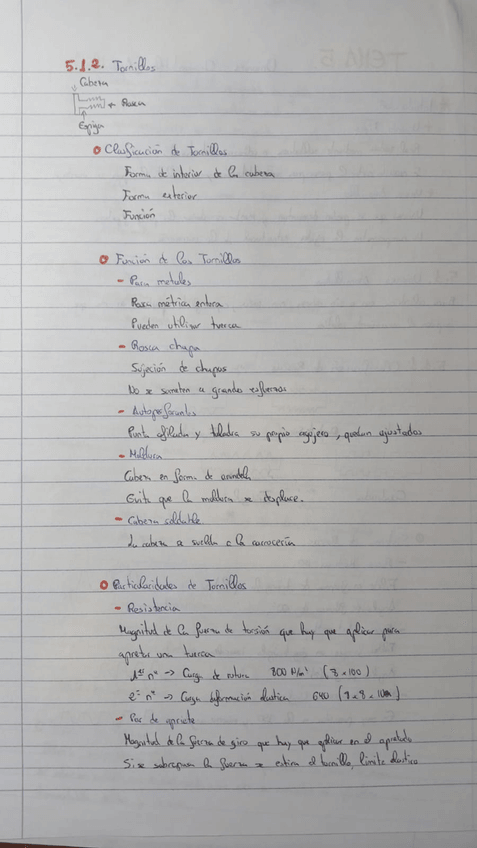 5.1.2. Tornillos
Cabeza
Rosca
Espiga
Clasificación de Tornillos
Forma de interior de la cabeza
Forma exterior
Función
Función de los Tornillos
- Para metales
Rosca métrica entera
Pueden utilizar tuerca
- Rosca chapa
Sujeción de chapas
No se someten a grandes esfuerzos
- Autoperforantes
Punta afilada y taladra su propio agujero, quedan ajustados
- Moldura
Cabeza en forma de arandela
Evita que la moldura se desplace.
- Cabeza soldable
La cabeza a suelda a la carrocería
Particularidades de Tornillos
- Resistencia
Magnitud de la fuerza de torsión que hay que aplicar para
apretar una tuerca
1er nº -> Carga de rotura 800 N/m² (8 x 100)
2º nº -> Carga deformación elástica 640 (8 x 8 x 10)
- Par de apriete
Magnitud de la fuerza de giro que hay que aplicar en el apretado
Si se sobrepasa la fuerza se estira el tornillo, límite elástico